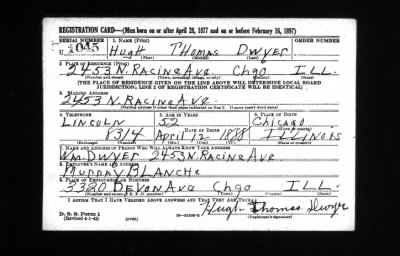 REGISTRATION CARD—(Men born on or after April 28, 1877 and on or before February 16, 1897)
SERIAL NUMBER 1. NAME (Print) ORDER NUMBER
U 1045 HUGH THOMAS DWYER
(First) (Middle) (Last)
2. PLACE OF RESIDENCE (Print)
2453 N. RACINE AVE CHGO ILL.
(Number and street) (Town, township, village, or city) (County) (State)
[THE PLACE OF RESIDENCE GIVEN ON THE LINE ABOVE WILL DETERMINE LOCAL BOARD
JURISDICTION; LINE 2 OF REGISTRATION CERTIFICATE WILL BE IDENTICAL]
3. MAILING ADDRESS
2453 N. RACINE AVE.
[Mailing address if other than place indicated on line 2. If same insert word same]
4. TELEPHONE 5. AGE IN YEARS 6. PLACE OF BIRTH
LINCOLN 52 CHICAGO
DATE OF BIRTH (Town or county)
8314 APRIL 12 1888 ILLINOIS
(Mo.) (Day) (Yr.) (State or country)
7. NAME AND ADDRESS OF PERSON WHO WILL ALWAYS KNOW YOUR ADDRESS
WM. DWYER 2453 N. RACINE AVE.
8. EMPLOYER'S NAME AND ADDRESS
MURRAY BLANCHE
9. PLACE OF EMPLOYMENT OR BUSINESS
3320 DEVON AVE CHGO ILL.
(Number and street or R. F. D. number) (Town) (County) (State)
I AFFIRM THAT I HAVE VERIFIED ABOVE ANSWERS AND THAT THEY ARE TRUE.
D. S. S. Form 1
(Revised 4-1-42) (over) Hugh Thomas Dwyer
(Registrant's signature)